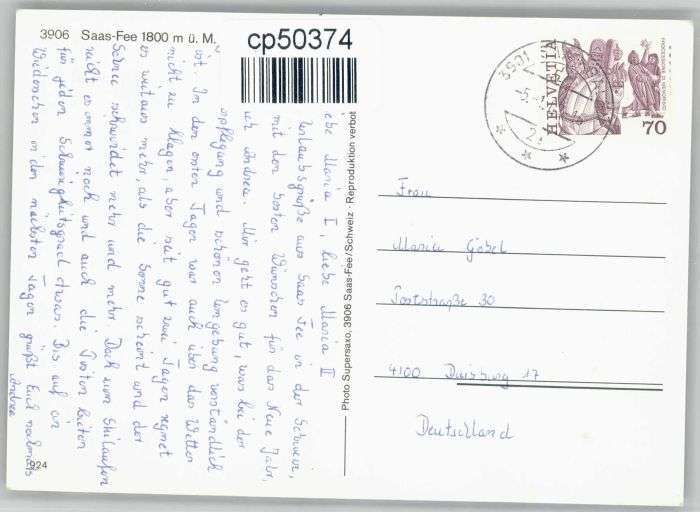 3906 Saas-Fee 1800 m ü. M.
cp50374
HELVETIA
70
3901
Liebe Maria I, liebe Maria II
Urlaubsgrüße aus Saas Fee in der Schweiz,
mit den besten Wünschen für das Neue Jahr,
ich Andrea. Mir geht es gut, was bei der
Verpflegung und schönen Umgebung verständlich
ist. In den ersten Tagen war auch über das Wetter
nicht zu klagen, aber seit gut zwei Tagen regnet
es weitaus mehr, als die Sonne scheint und der
Schnee schwindet mehr und mehr. Doch zum Skilaufen
reicht es immer noch und auch die Pisten bieten
für jeden Schwierigkeitsgrad etwas. Bis auf ein
Wiedersehen in den nächsten Tagen grüßt Euch nochmals
Andrea
924
Photo Supersaxo, 3906 Saas-Fee/Schweiz - Reproduktion verbot
Frau
Maria Göbel
Poststraße 30
4100 Duisburg 17
Deutschland